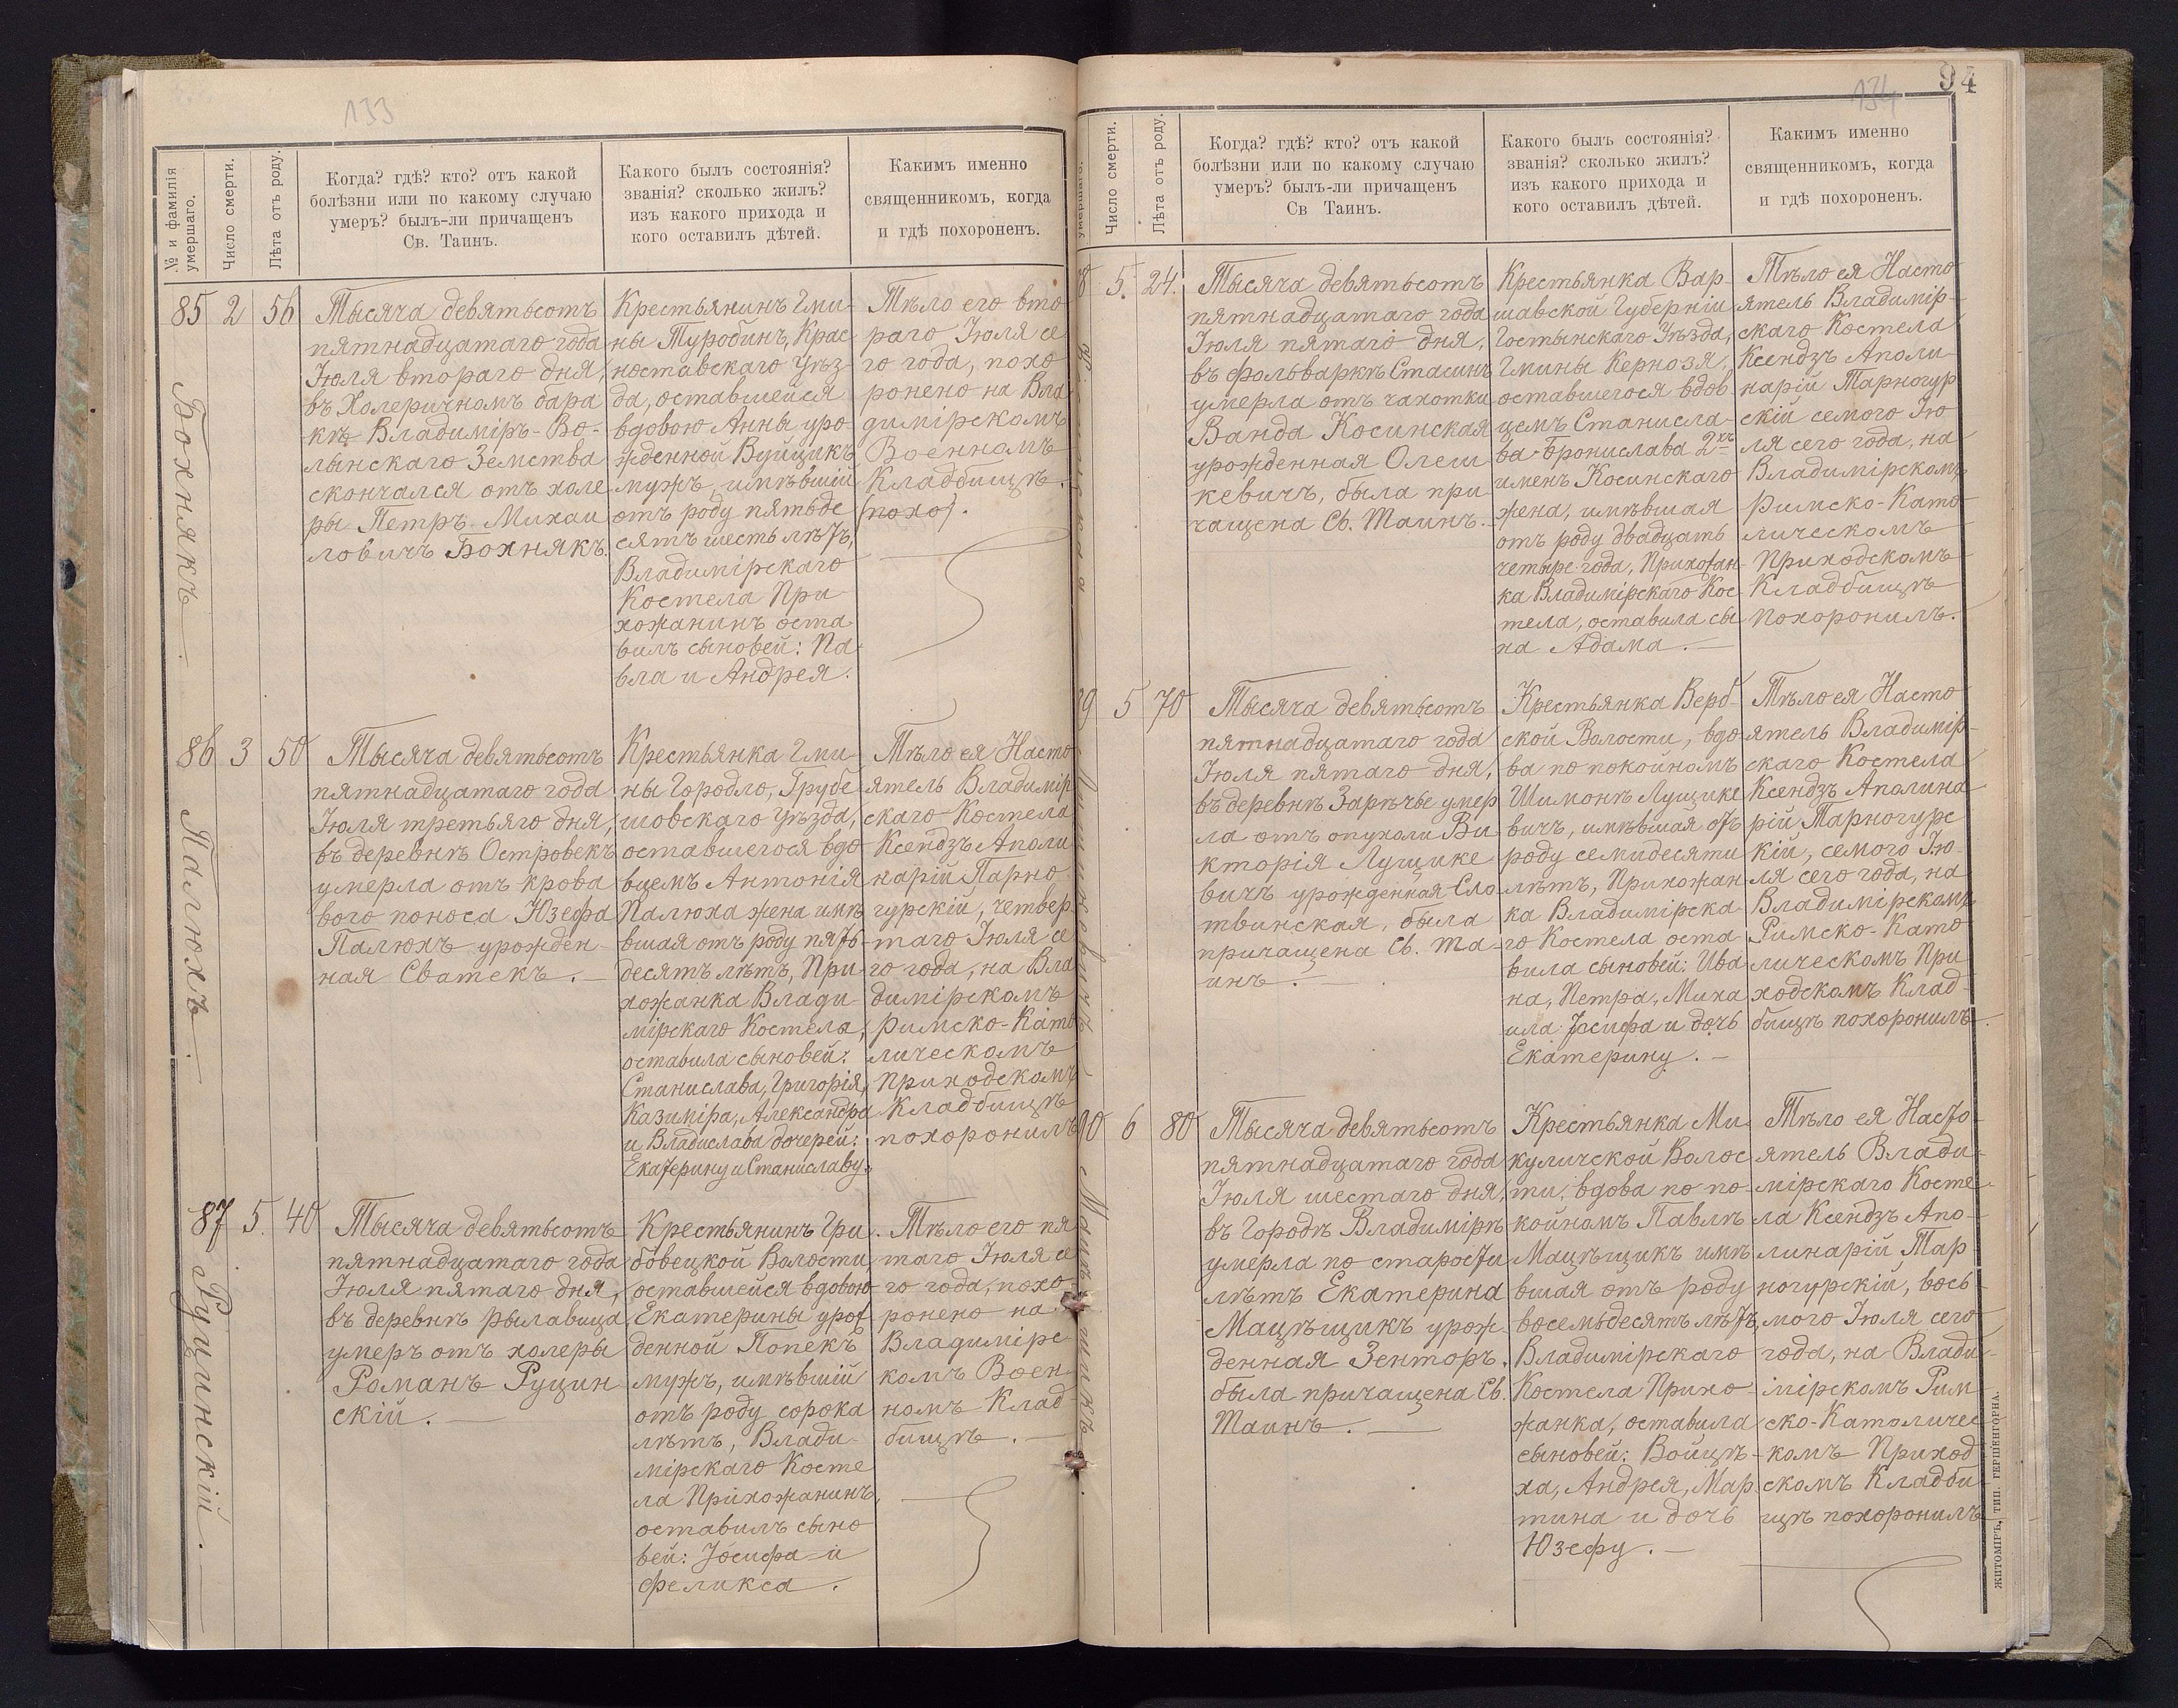 133
№ и фамилія умершаго.
Число смерти.
Лѣта отъ роду.
Когда? гдѣ? кто? отъ какой
болѣзни или по какому случаю
умеръ? былъ-ли причащенъ
Св. Таинъ.
Какого былъ состоянія?
званія? сколько жилъ?
изъ какого прихода и
кого оставилъ дѣтей.
Какимъ именно
священникомъ, когда
и гдѣ похороненъ.
85 2 56
Бохнякъ.
Тысяча девятьсотъ
пятнадцатаго года
Іюля втораго дня,
въ Холеричномъ бара
кѣ Владиміръ-Во-
лынскаго Земства
скончался отъ холе
ры Петръ Михаи
ловичъ Бохнякъ.
Крестьянинъ Гми-
ны Туробинъ, Крас
ноставскаго Уѣз-
да, оставшейся
вдовою Анны уро-
жденной Вуйцикъ
мужъ, имѣвшій
отъ роду пятьде
сятъ шесть лѣтъ,
Владимірскаго
Костела При
хожанинъ оста
вилъ сыновей: Па
вла и Андрея.
Тѣло его вто
раго Іюля се
го года, похо
ронено на Вла
димірскомъ
Военномъ
Кладбищѣ.
(похо).
86 3 50
Палюхъ.
Тысяча девятьсотъ
пятнадцатаго года
Іюля третьяго дня,
въ деревнѣ Островекъ
умерла отъ крова
вого поноса Юзефа
Палюхъ урожден-
ная Сватекъ.
Крестьянка Гми-
ны Городло, Грубе
шовскаго Уѣзда,
оставшегося вдо
вцемъ Антонія
Палюха жена имѣ
вшая отъ роду пять
десятъ лѣтъ, При
хожанка Влади-
мірскаго Костела,
оставила сыновей:
Станислава, Григорія,
Казиміра, Александра
и Владислава дочерей:
Екатерину и Станиславу.
Тѣло ея Насто
ятель Владимір
скаго Костела
Ксендзъ Аполи
нарій Тарно
гурскій, четвер
таго Іюля се
го года, на Вла
димірскомъ
Римско-Като
лическомъ
Приходскомъ
Кладбищѣ
похоронилъ
87 5. 40
Руцинскій.
Тысяча девятьсотъ
пятнадцатаго года
Іюля пятаго дня,
въ деревнѣ Рылавица
умеръ отъ холеры
Романъ Руцин
скій.
Крестьянинъ Гри
бовецкой Волости
оставшейся вдовою
Екатерины урож
денной Попекъ
мужъ, имѣвшій
отъ роду сорока
лѣтъ, Влади-
мірскаго Косте
ла Прихожанинъ,
оставилъ сыно
вей: Іосифа и
Феликса.
Тѣло его пя
таго Іюля се
го года, похо-
ронено на
Владимірс
комъ Воен
номъ Клад
бищѣ.
94
134
умершаго.
Число смерти.
Лѣта отъ роду.
Когда? гдѣ? кто? отъ какой
болѣзни или по какому случаю
умеръ? былъ-ли причащенъ
Св Таинъ.
Какого былъ состоянія?
званія? сколько жилъ?
изъ какого прихода и
кого оставилъ дѣтей.
Какимъ именно
священникомъ, когда
и гдѣ похороненъ.
8 5. 24.
Тысяча девятьсотъ
пятнадцатаго года
Іюля пятаго дня,
въ фольваркѣ Стасинъ
умерла отъ чахотки
Ванда Косинская
урожденная Олеш
кевичъ, была при
чащена Св. Таинъ.
Крестьянка Вар-
шавской Губерніи
Гостынскаго Уѣзда,
Гмины Кернозя,
оставшегося вдов
цемъ Станисла-
ва-Бронислава 2хъ
именъ Косинскаго
жена, имѣвшая
отъ роду двадцать
четыре года, Прихожан
ка Владимірскаго Кос
тела, оставила сы
на Адама.
Тѣло ея Насто
ятель Владимір-
скаго Костела
Ксендзъ Аполи
нарій Тарногур
скій семого Ію
ля сего года, на
Владимірскомъ
Римско-Като
лическомъ
Приходскомъ
Кладбищѣ
похоронилъ.
9 5 70
Тысяча девятьсотъ
пятнадцатаго года
Іюля пятаго дня,
въ деревнѣ Зарѣчье умер
ла отъ опухоли Ви
кторія Лущике
вичъ урожденная Сло
твинская, была
причащена Св. Та
инъ.
Крестьянка Верб-
ской Волости, вдо
ва по покойномъ
Шимонѣ Лущике
вичъ, имѣвшая отъ
роду семидесяти
лѣтъ, Прихожан
ка Владимірска-
го Костела оста
вила сыновей: Ива
на, Петра, Миха
ила Іосифа и дочь
Екатерину.
Тѣло ея Насто
ятель Владимір-
скаго Костела
Ксендзъ Аполина
рій Тарногурс
кій, семого Ію-
ля сего года, на
Владимірскомъ
Римско-Като
лическомъ При
ходскомъ Клад-
бищѣ похоронилъ
90 6 80
Тысяча девятьсотъ
пятнадцатаго года
Іюля шестаго дня,
въ Городѣ Владимірѣ
умерла по старости
лѣтъ Екатерина
Мацѣщикъ урож-
денная Зенторъ.
была причащена Св.
Таинъ.
Крестьянка Ми
куличской Волос
ти, вдова по по-
койномъ Павлѣ
Мацѣщикъ имѣ
вшая отъ роду
восемьдесятъ лѣтъ,
Владимірскаго
Костела Прихо
жанка, оставила
сыновей: Войцѣ-
ха, Андрея, Мар
тина и дочь
Юзефу.
Тѣло ея Насто-
ятель Влади-
мірскаго Косте-
ла Ксендзъ Апо-
линарій Тар-
ногурскій, вось
мого Іюля сего
года, на Влади-
мірскомъ Рим
ско-Католичес
комъ Приход
скомъ Кладби-
щѣ похоронилъ
ЖИТОМІРЪ, ТИП. ГЕРШЕНГОРНА.